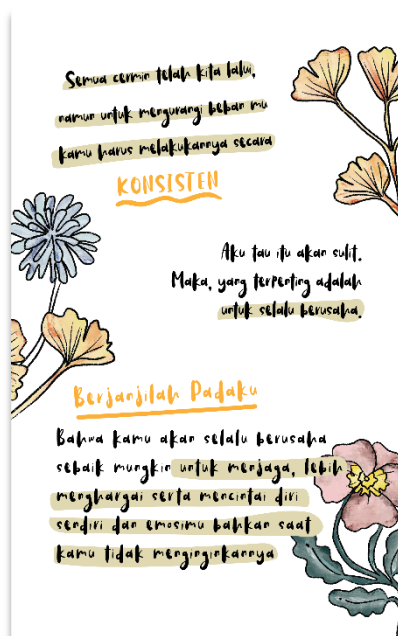 Semua cermin telah kita lalui,
namun untuk mengurangi beban mu
kamu harus melakukannya secara
KONSISTEN
Aku tau itu akan sulit.
Maka, yang terpenting adalah
untuk selalu berusaha.
Berjanjilah Padaku
Bahwa kamu akan selalu berusaha
sebaik mungkin untuk menjaga, lebih
menghargai serta mencintai diri
sendiri dan emosimu bahkan saat
kamu tidak menginginkannya